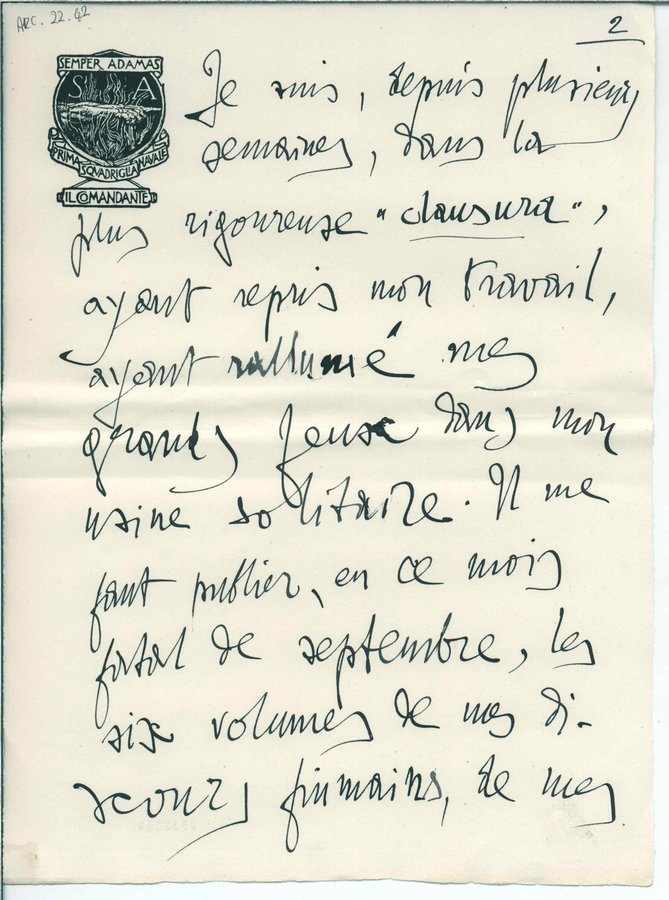 ARC. 22.42
2
SEMPER ADAMAS
S A
PRIMA SQVADRIGLIA NAVALE
IL COMANDANTE
Je suis, depuis plusieurs
semaines, dans la
plus rigoureuse "clausura",
ayant repris mon travail,
ayant rallumé mes
grands feux dans mon
usine solitaire. Il me
faut publier, en ce mois
fatal de septembre, les
six volumes de mes di-
scours fiumains, de mes